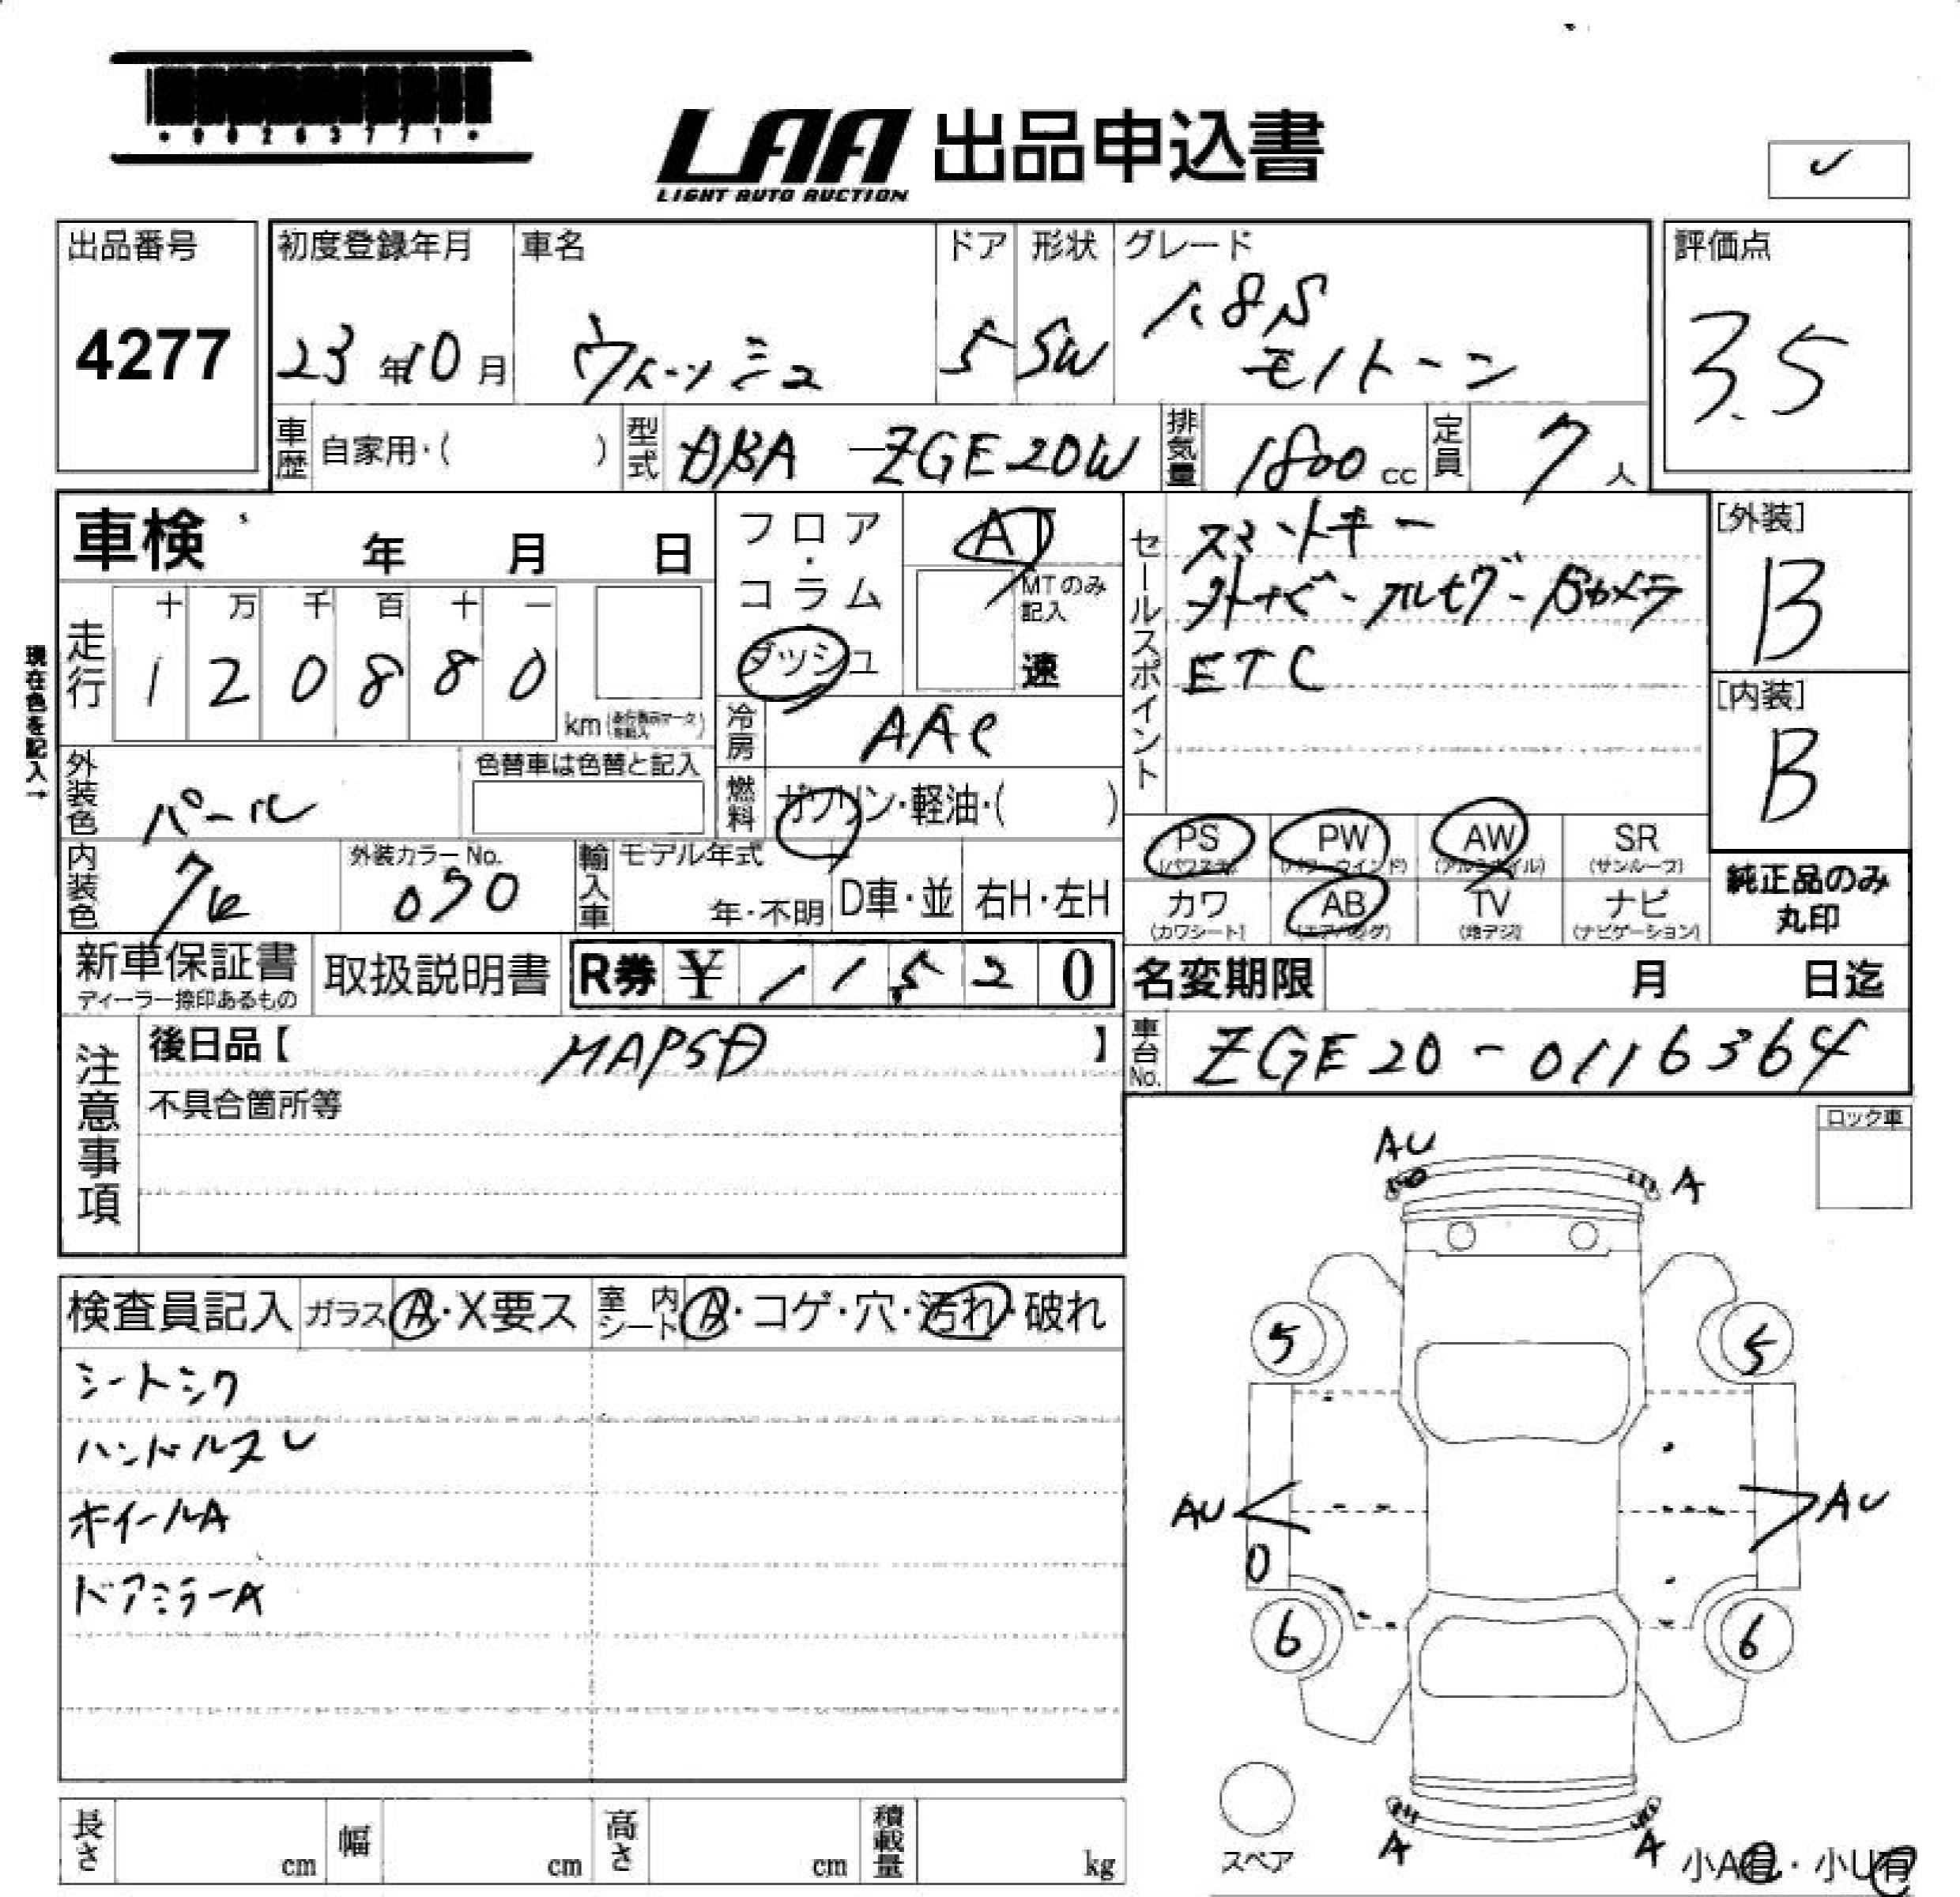 *00263771*
LAA 出品申込書
LIGHT AUTO AUCTION
出品番号
4277
初度登録年月
23年10月
車名
ウィッシュ
ドア
5
形状
SW
グレード
1.8S
モノトーン
評価点
3.5
車歴 自家用・( )
型式 DBA-ZGE20W
排気量 1800 cc
定員 7 人
車検 年 月 日
フロア・コラム
ダッシュ
AT
MTのみ記入
速
セールスポイント
スマートキー
外ナビ-フルセグ-Bカメラ
ETC
[外装]
B
[内装]
B
現在色を記入→
走行
十 万 千 百 十 一
1 2 0 8 8 0
km
冷房 AAC
外装色 パール
色替車は色替と記入
燃料 ガソリン・軽油・( )
内装色
外装カラーNo.
070
輸入車
モデル年式
年・不明
D車・並
右H・左H
PS (パワステ)
PW (パワーウインド)
AW (アルミホイル)
SR (サンルーフ)
カワ (カワシート)
AB (エアバッグ)
TV (地デジ)
ナビ (ナビゲーション)
純正品のみ
丸印
新車保証書
ディーラー捺印あるもの
取扱説明書
R券 ¥ 11,520
名変期限 月 日迄
注意事項
後日品【 】
不具合箇所等
車台No. ZGE20-0116364
ロック車
検査員記入
ガラス A・X要ス
室内シート A・コゲ・穴・汚れ・破れ
シートシワ
ハンドルスレ
ホイールA
ドアミラーA
AU
A
5
5
AU
AU
0
6
6
スペア
A
A
小A有・小U有
長さ cm
幅 cm
高さ cm
積載量 kg